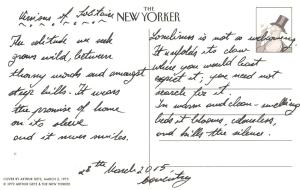 Visions of Solitude
THE
NEW YORKER
The solitude we seek
grows wild, between
thorny woods and amongst
steep hills. It wears
the promise of home
on its sleeve
and it never smiles.
Loneliness is not a
It unfolds its claw
where you would least
expect it; you need not
search for it.
In warm and clean-smelling
beds it blooms, odourless,
and kills the silence.
28th March 2015
Coventry
COVER BY ARTHUR GETZ, MARCH 3, 1973
© 1973 ARTHUR GETZ & THE NEW YORKER